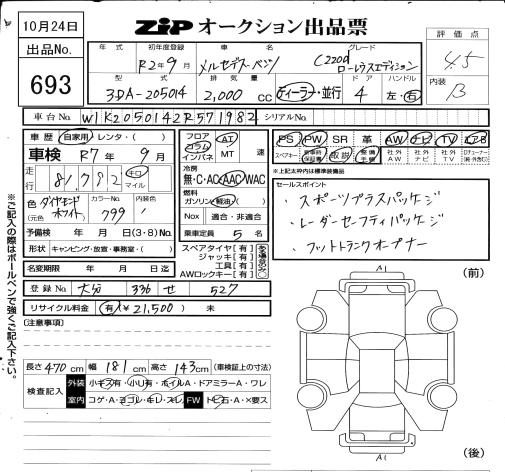 10月24日
ZIP オークション出品票
出品No.
693
評価点
4.5
内装
B
年式 初年度登録 車名 グレード
R2年9月 メルセデス・ベンツ C220d ローレウスエディション
型式 排気量 ドア ハンドル
3DA-205014 2,000 CC ディーラー・並行 4 左・右
車台No. W1K2050142R571982 シリアルNo.
車歴 自家用・レンタ・( )
車検 R7年9月
走行 81,792 キロ マイル
色 ダイヤモンドホワイト (元色 ) カラーNo. 799 内装色
予備検 年 月 日(3・8)No.
形状 キャンピング・放置・事務室・( )
名変期限 年 月 日迄
フロア コラム インパネ AT MT 速
冷房
無・C・AC AAC WAC
燃料
ガソリン 軽油 ( )
Nox 適合・非適合
乗車定員 5 名
スペアタイヤ[有]
ジャッキ[有]
工具[有]
AWロックキー[有]
ある場合のみ〇
PS PW SR 革 AW ナビ TV エアB
スペアキー 新車時保証書 取説 整備手帳 社外AW 社外ナビ 社外TV
★上記太枠は標準装備品
セールスポイント
・スポーツプラスパッケージ
・レーダーセーフティパッケージ
・フットトランクオープナー
登録No. 大分 336 せ 527
リサイクル料金 有(¥21,500) 未
(注意事項)
長さ470cm 幅181cm 高さ143cm (車検証上の寸法)
検査記入 外装 小キズ有・小凹有・ホイルA・ドアミラーA・ワレ
室内 コゲ・A・ヨゴレ・キレ・スレ FW トビ石・A・X要ス
※ご記入の際はボールペンで強くご記入下さい。
A1
(前)
A1
(後)